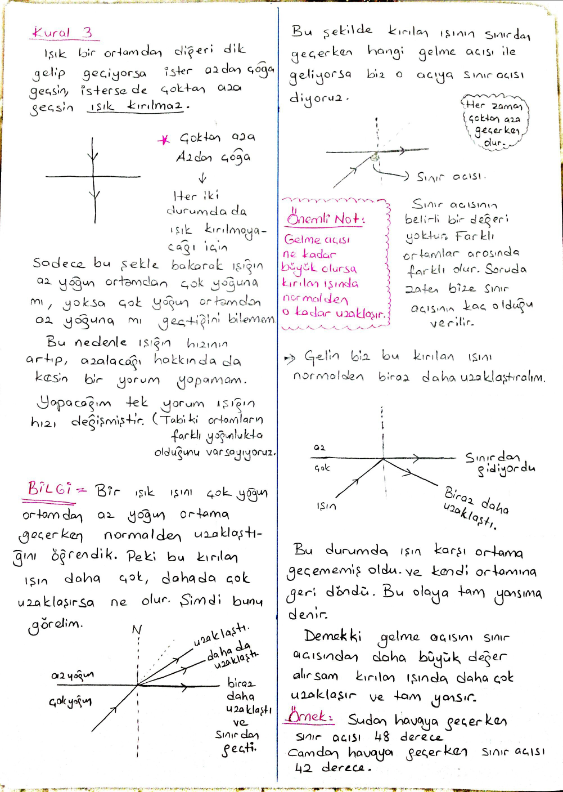 Kural 3
Işık bir ortamdan diğeri dik
gelip geçiyorsa ister azdan çoğa
geçsin, isterse de çoktan aza
geçsin ışık kırılmaz.
* Çoktan aza
Azdan çoğa
Her iki
durumda da
ışık kırılmaya-
cağı için
Sadece bu şekle bakarak ışığın
az yoğun ortamdan çok yoğuna
mı, yoksa çok yoğun ortamdan
az yoğuna mı geçtiğini bilemem
Bu nedenle ışığın hızının
artıp, azalacağı hakkında da
kesin bir yorum yapamam.
Yapacağım tek yorum ışığın
hızı değişmiştir. (Tabiki ortamların
farklı yoğunlukta
olduğunu varsayıyoruz.
BİLGİ = Bir ışık ışını çok yoğun
ortamdan az yoğun ortama
geçerken normalden uzaklaştı-
ğını öğrendik. Peki bu kırılan
ışın daha çok, dahada çok
uzaklaşırsa ne olur. Şimdi bunu
görelim.
N
uzaklaştı.
daha da
uzaklaştı
az yoğun
çok yoğun
biraz
daha
uzaklaştı
ve
sınırdan
geçti.
Bu şekilde kırılan ışının sınırdan
geçerken hangi gelme açısı ile
geliyorsa biz o açıya sınır açısı
diyoruz.
Her zaman
çoktan aza
geçerken
olur.
Sınır açısı.
Önemli Not:
Gelme açısı
ne kadar
büyük olursa
kırılan ışında
normalden
o kadar uzaklaşır.
Sınır açısının
belirli bir değeri
yoktur. Farklı
ortamlar arasında
farklı olur. Soruda
zaten bize sınır
açısının kaç olduğu
verilir.
Gelin biz bu kırılan ışını
normalden biraz daha uzaklaştıralım.
az
çok
Sınırdan
gidiyordu
ışın
Biraz daha
uzaklaştı.
Bu durumda ışın karşı ortama
geçememiş oldu. ve kendi ortamına
geri döndü. Bu olaya tam yansıma
denir.
Demekki gelme açısını sınır
açısından daha büyük değer
alırsam kırılan ışında daha çok
uzaklaşır ve tam yansır.
Örnek: Sudan havaya geçerken
sınır açısı 48 derece
Camdan havaya geçerken sınır açısı
42 derece.